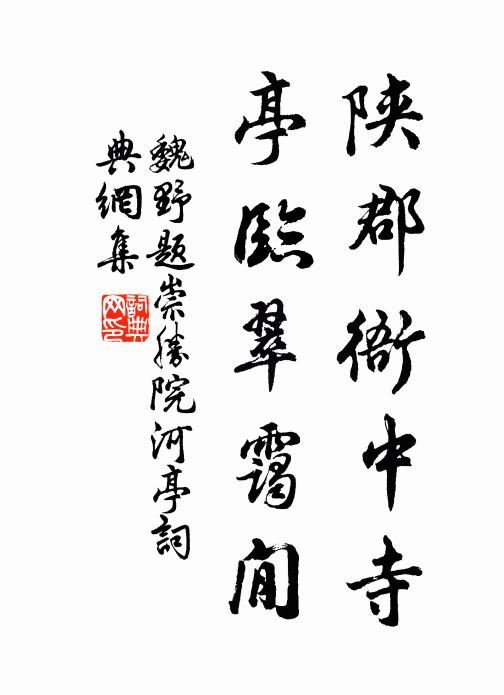 陝郡衙中寺
亭臨翠靄間
魏野題崇勝院河亭詞
典網集
詞典網印